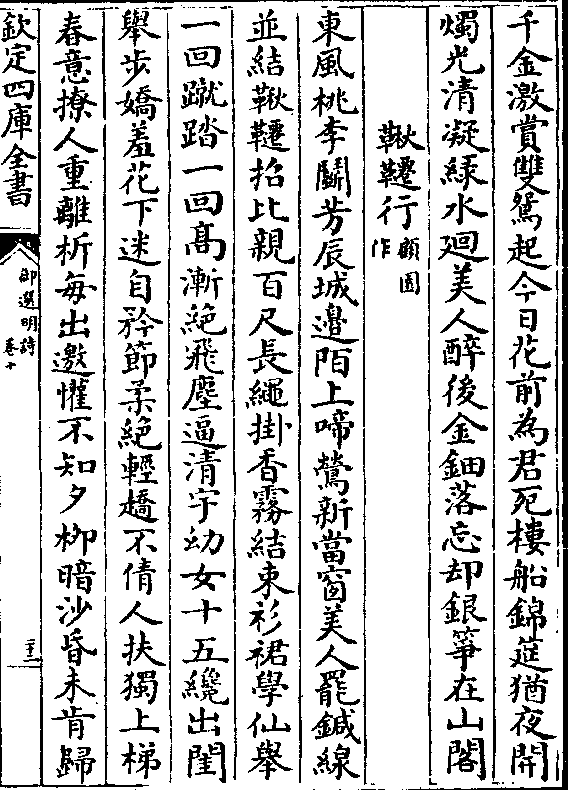 千金激賞雙鴛起今日花前為君死樓船錦筵猶夜開
燭光清凝緑水廻美人醉後金鈿落忘却銀箏在山閣
鞦韆行顧圓作
東風桃李鬭芳辰城邉陌上啼鶯新當窗美人罷鍼線
並結鞦韆招比親百尺長繩掛香霧結束衫裙學仙舉
一回蹴踏一回髙漸絶飛塵逼清宇幼女十五纔出閨
舉步嬌羞花下迷自矜節柔絶輕趫不倩人扶獨上梯
春意撩人重離析每出邀懽不知夕栁暗沙昏未肯歸
欽定四庫全書
御選明詩
卷十